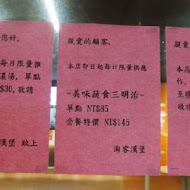 您好,
每日限量推
濃湯,單點
$30,敬請
漢堡 啟上
親愛的顧客,
本店即日起每日限量供應
~美味蔬食三明治~
單點 NT$85
套餐特價 NT$145
淘客漢堡
親愛
本店